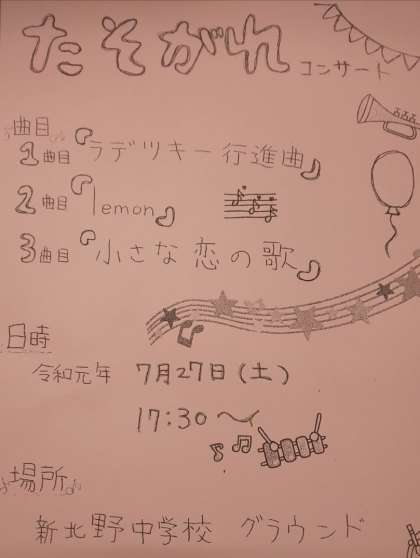 たそがれ コンサート
曲目
1曲目 「ラデツキー行進曲」
2曲目 「lemon」
3曲目 「小さな恋の歌」
日時
令和元年 7月27日(土)
17:30〜
場所
新北野中学校 グラウンド